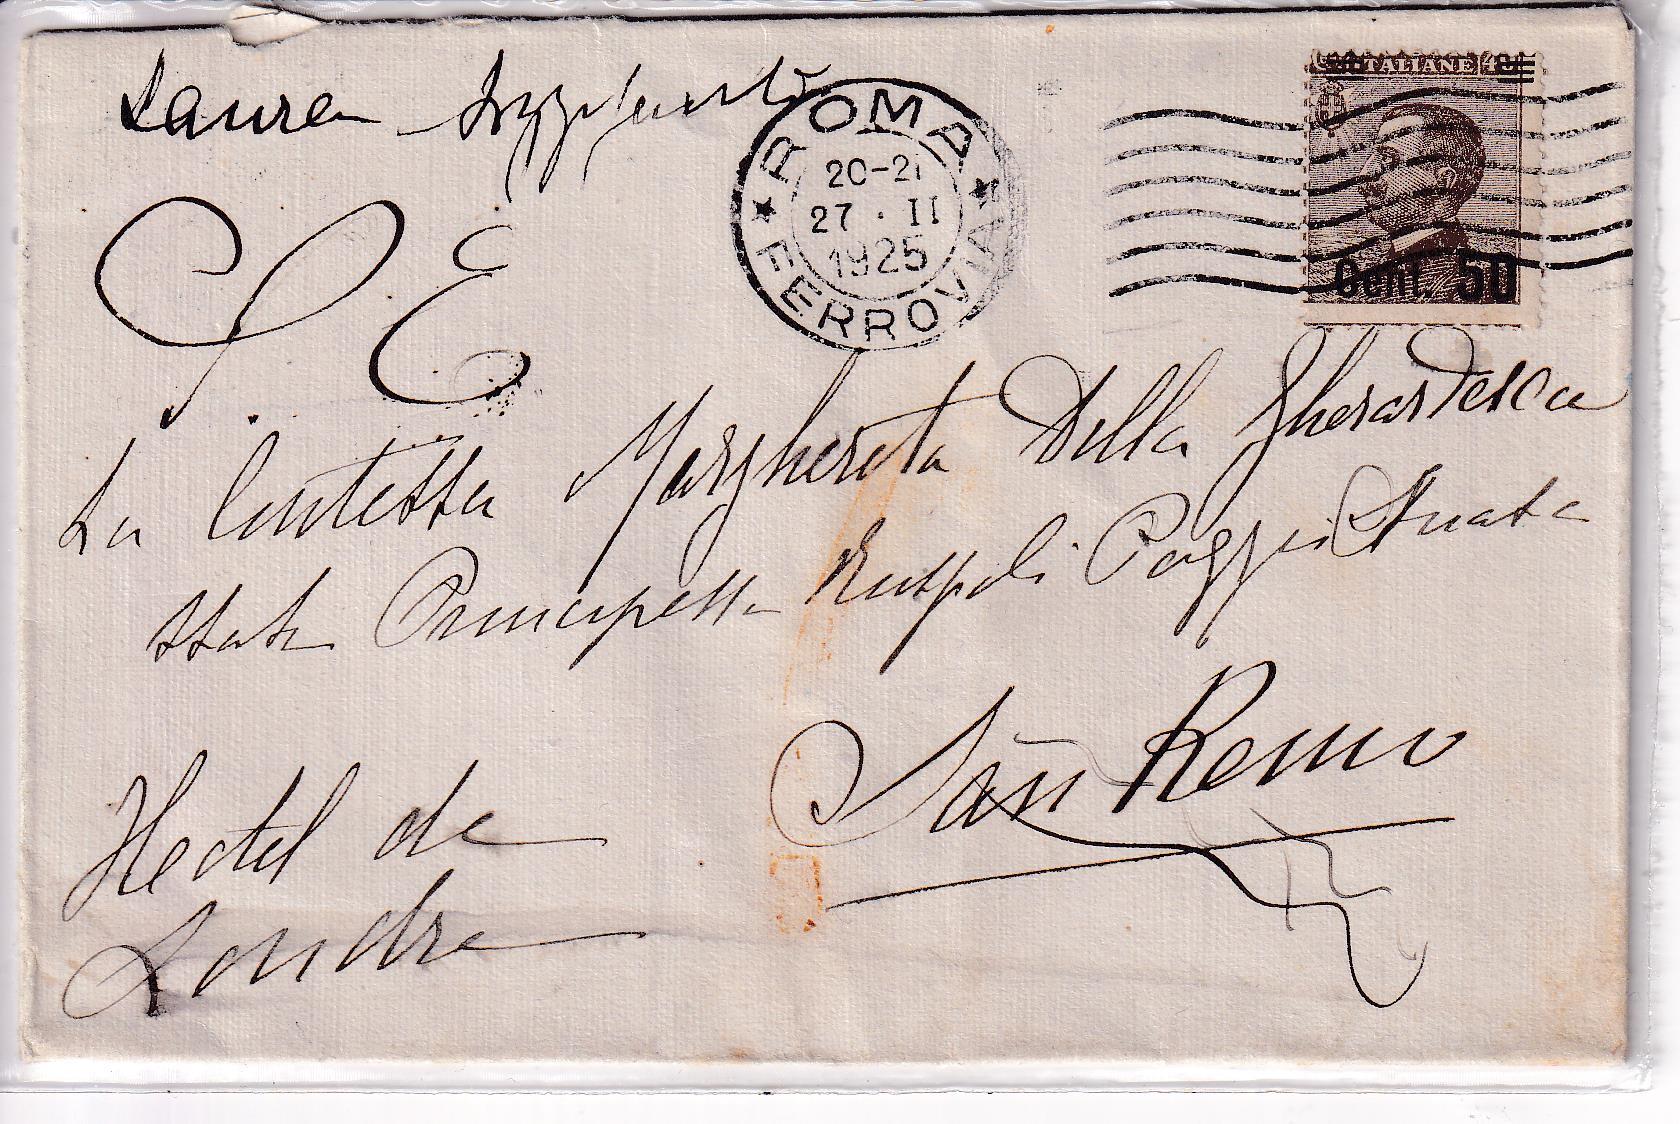 Laura
ROMA
FERROVIA
20-21
27 · II
1925
TALIANE 4
Cent. 50
S. E.
La Contessa Margherita Della Gherardesca
nata Principessa Ruspoli Poggio Suasa
San Remo
Hotel de
Londra